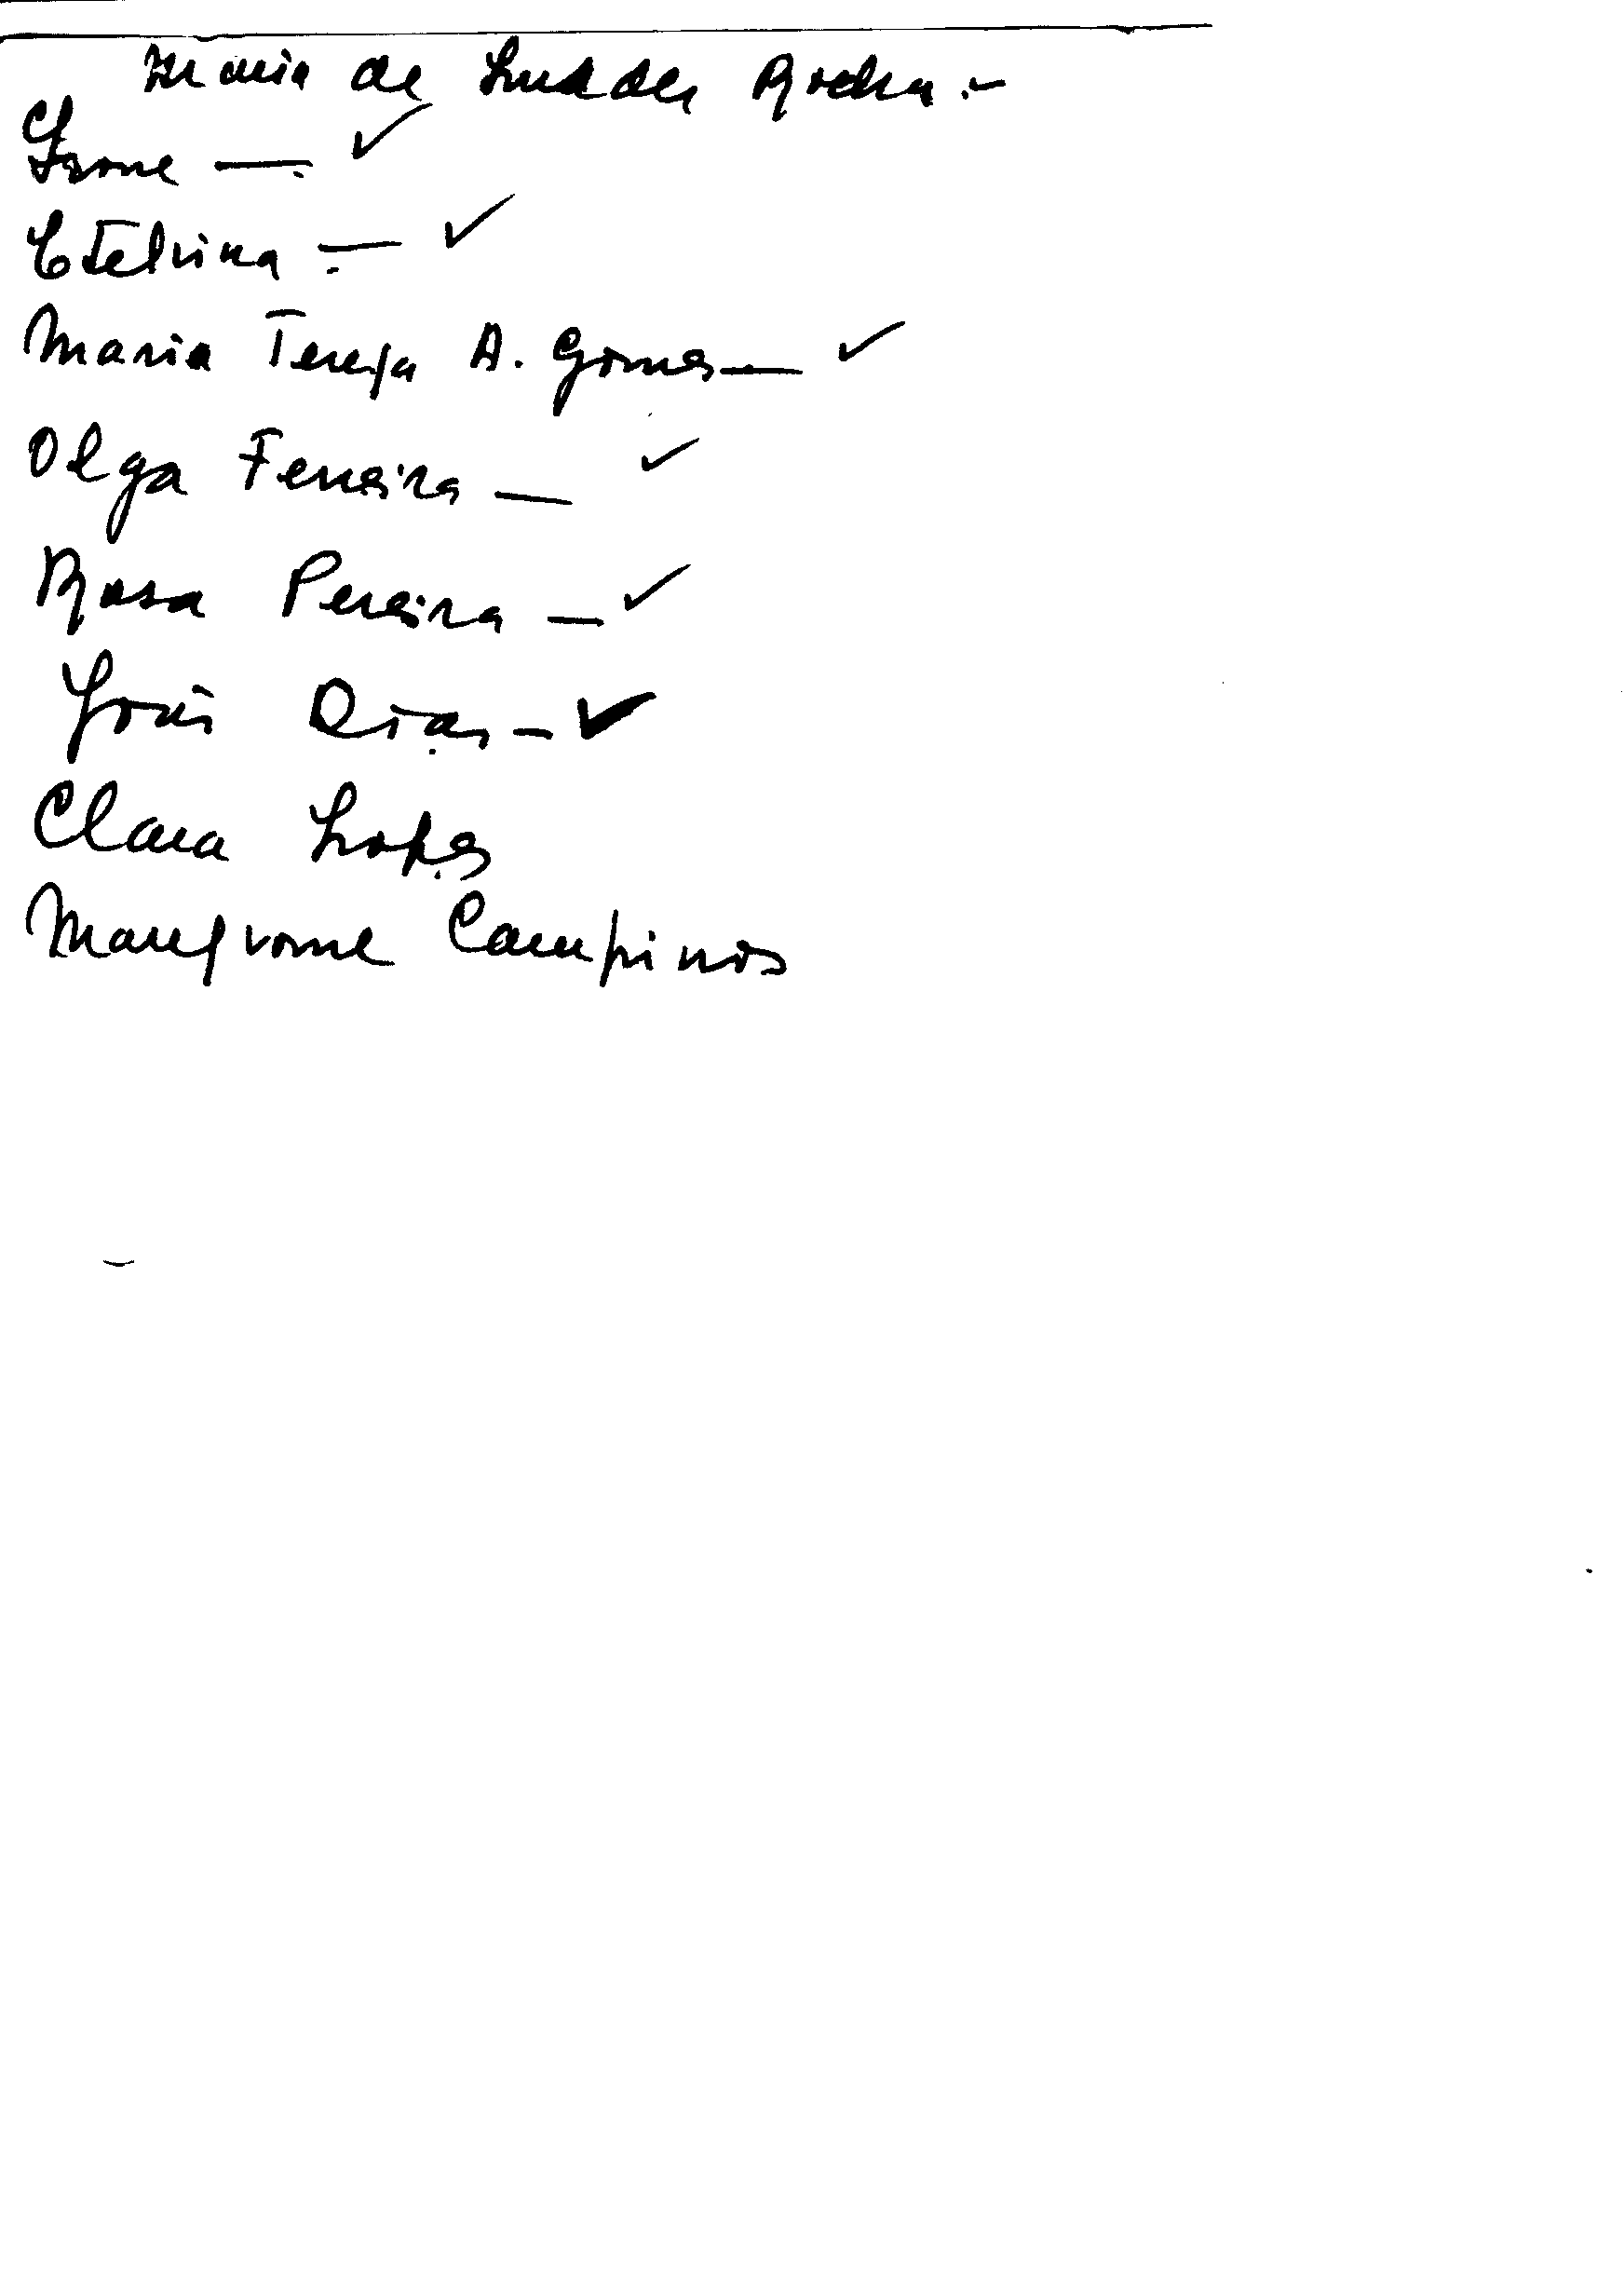 Maria de Lurdes Rocha .-
Ivone — . ✓
Etelvina — . ✓
Maria Tereza A. Gomes — ✓
Olga Ferreira — ✓
Rosa Pereira — ✓
Dias - ✓
Clara Lopes
Campinos